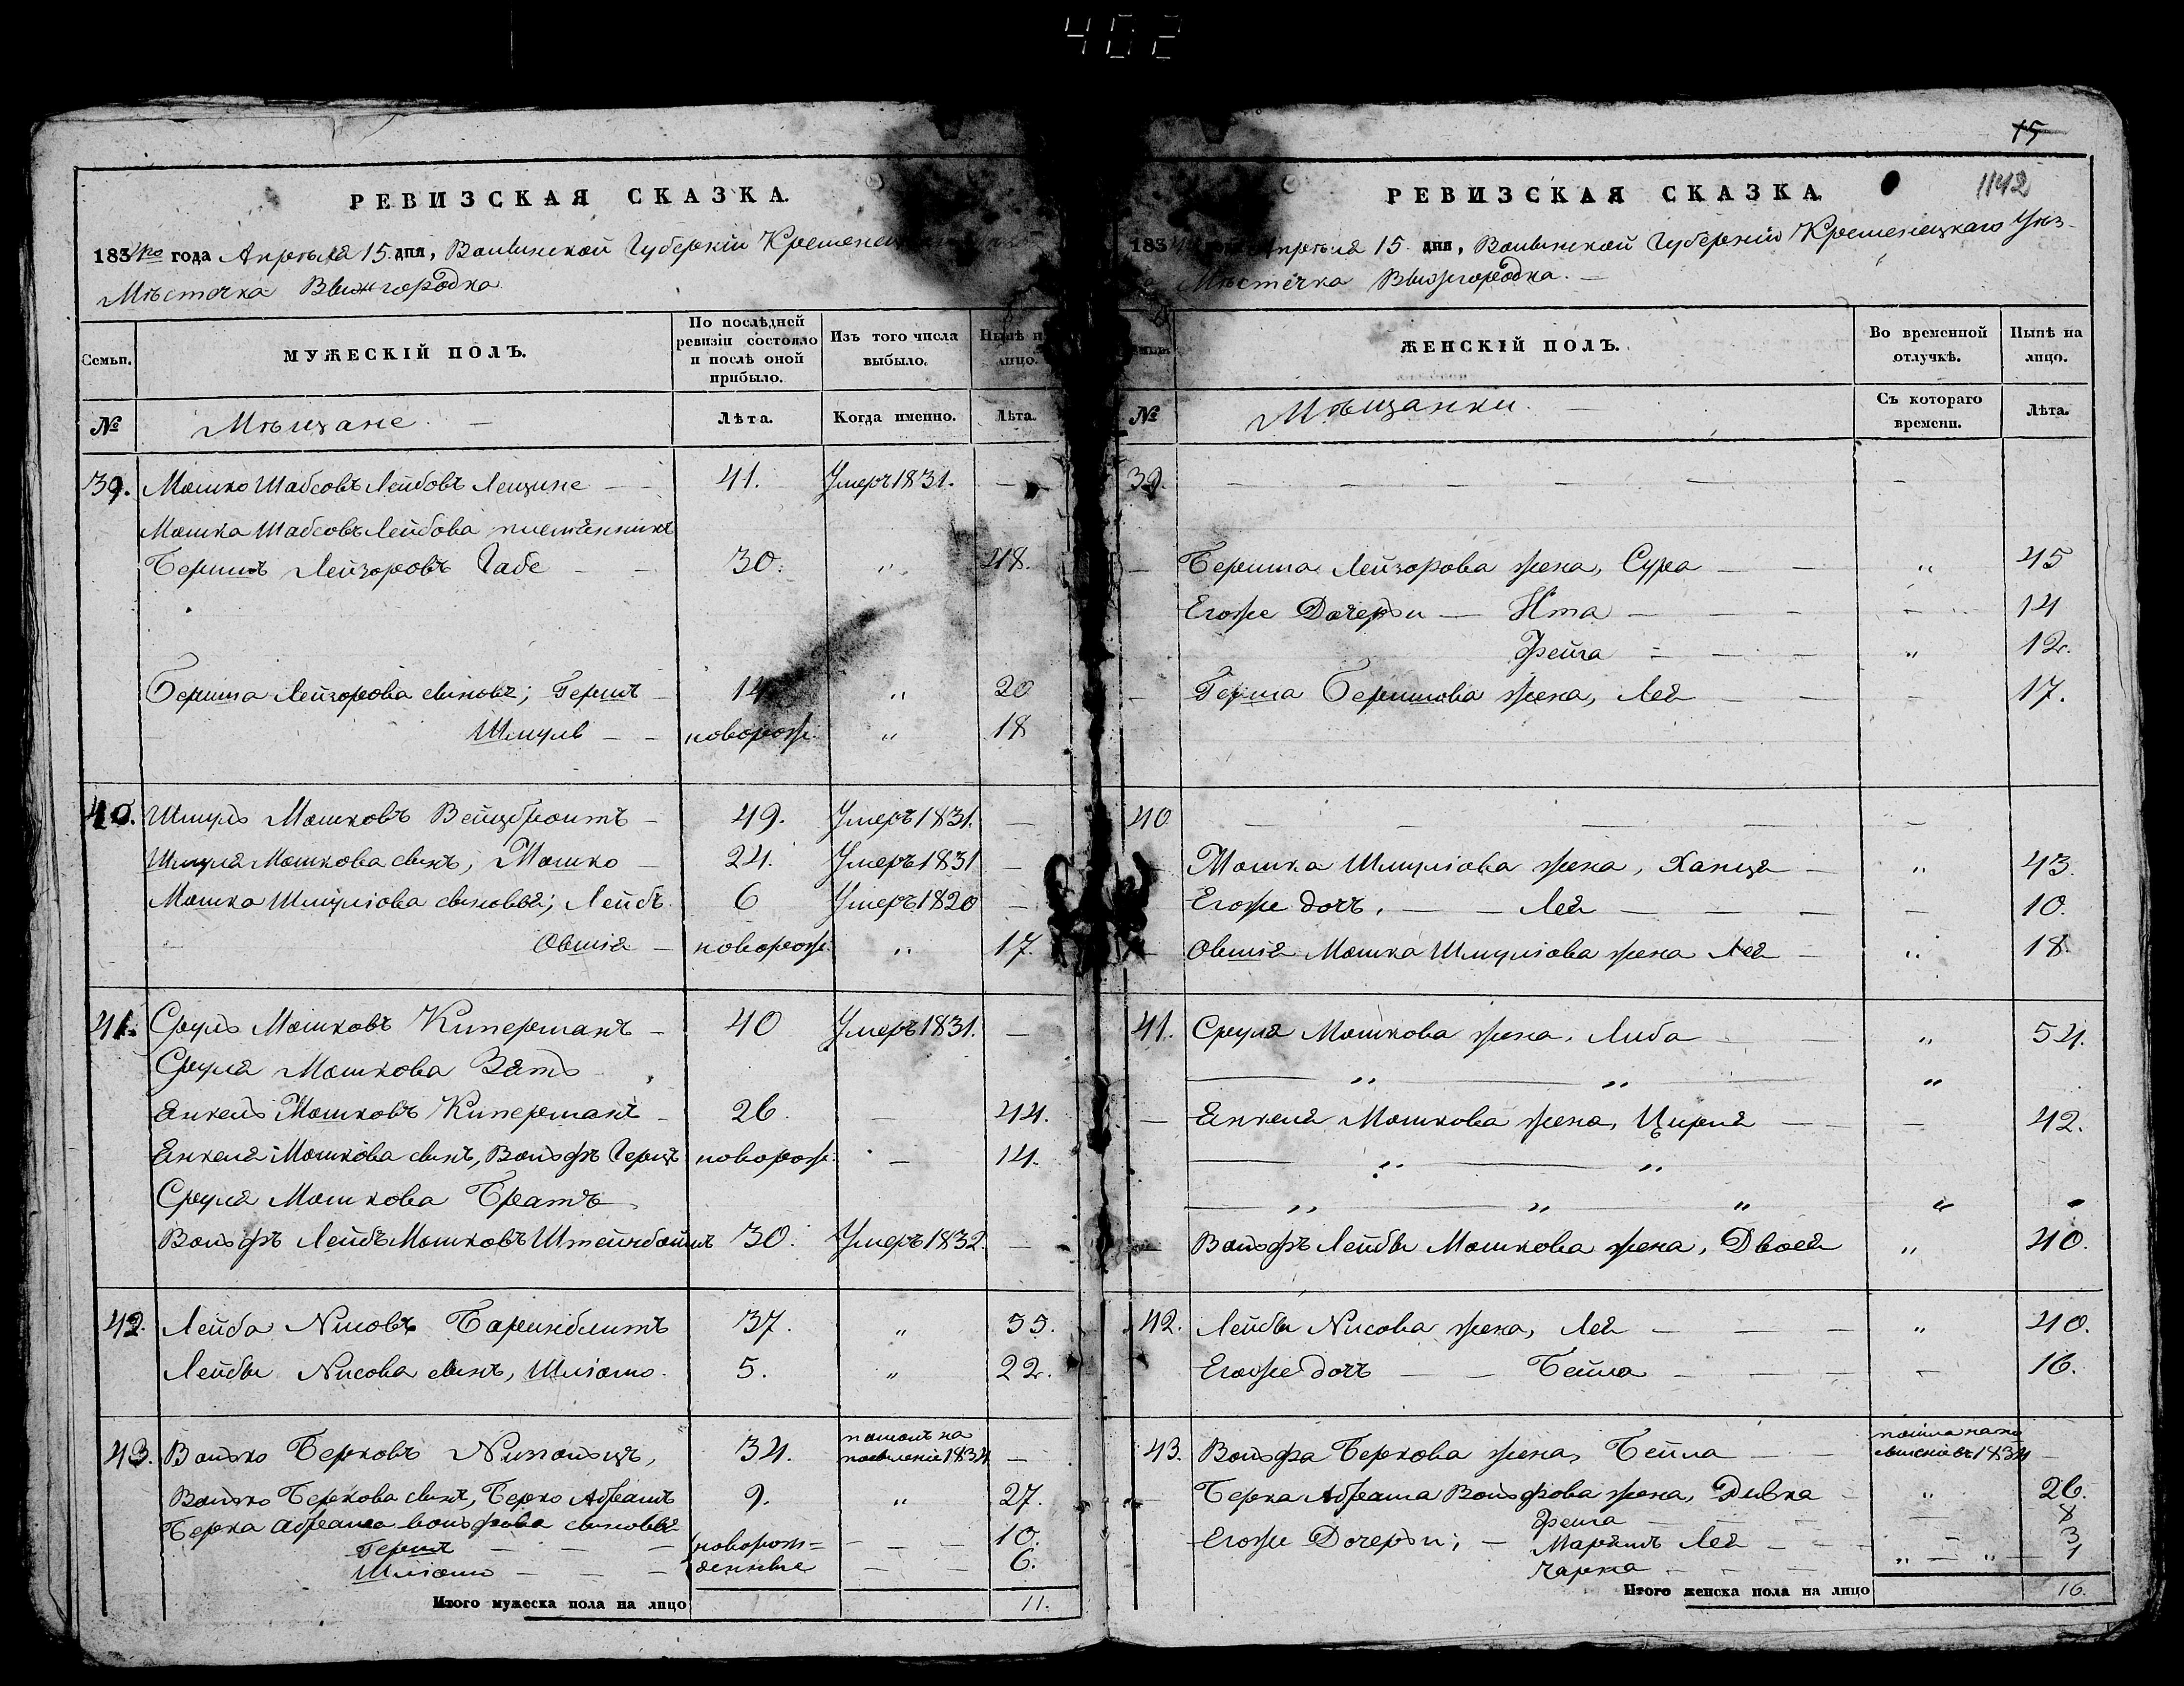 402
РЕВИЗСКАЯ СКАЗКА.
1834го года Апрѣля 15. дня, Волынской Губерніи
Мѣстечка Вышгородка
Семьи.
МУЖЕСКІЙ ПОЛЪ.
По послѣдней ревизіи состояло и послѣ оной прибыло.
Изъ того числа выбыло.
Нынѣ на лицо.
№
Мѣщане.
Лѣта.
Когда именно.
Лѣта.
39. Мошко Шабсовъ Лейбовъ 41. Умеръ 1831. —
Мошка Шабсовъ Лейбова племянникъ
Бершъ Лейзоровъ Габе 30. " 48.
Берша Лейзорова сыновъ; Гершъ " 20
Шмуль новорож. " 18
40. Шмуль Мошковъ Вейцброитъ 49. Умеръ 1831. —
Шмуля Мошкова сынъ, Мошко 24. Умеръ 1831 —
Мошка Шмулiова сыновья; Лейбъ 6 Умеръ 1820 —
Овшія новорож. " 17.
41. Сруль Мошковъ Киперманъ 40 Умеръ 1831. —
Сруля Мошкова Зять
Янкель Мошковъ Киперманъ 26. — 44.
Янкеля Мошкова сынъ, Вольфъ Герцъ новорож. — 14.
Сруля Мошкова Братъ
Вольфъ Лейбъ Мошковъ 30. Умеръ 1832. —
42. Лейба Nисовъ 37. " 55.
Лейбы Nисова сынъ, Шліомо. 5. " 22.
43. Волько Берковъ 34. пошолъ на поселеніе 1834 —
Волько Беркова сынъ, Берко Абрамъ 9. " 27.
Берка Абрама Вольфова сыновья
Гершъ — новорож= — 10.
Шліома — денные — 6.
Итого мужеска пола на лицо 11.
15
1142
РЕВИЗСКАЯ СКАЗКА
Апрѣля 15. дня, Волынской Губерніи Кременецкаго Уѣз-
да Мѣстечка Вышгородка. —
ЖЕНСКІЙ ПОЛЪ.
Во временной отлучкѣ.
Нынѣ на лицо.
№
Мѣщанки. —
Съ котораго времени.
Лѣта.
39. — — — — — —
— Берша Лейзорова жена, Сура — " 45
Егоже Дочери — Ита — — 14
Фейга — " 12.
— Герша Бершова жена, Лея — — 17.
40 — — — — —
— Мошка Шмулiова жена, Ханця — " 43.
Егоже дочь. — Лея — — 10.
— Овшія Мошка Шмулiова жена Лея — " 18.
41. Сруля Мошкова жена, Либа — " 54.
— " — " — "
— Янкеля Мошкова жена, Цирля — — 42.
— " — "
— " — " — " "
— Вольфъ Лейбы Мошкова жена, Двоея " 40.
42. Лейбы Nисова жена, Лея — " 40.
Егоже дочь — Бейла — — 16.
43. Вольфа Беркова жена, Бейла — пошла на по селеніе въ 1834 —
— Берка Абрама Вольфова жена, Дивка " 26.
Фейга — 8
Егоже Дочери; — Марьямъ Лея — 3
Чарна — " — " 1
Итого женска пола на лицо 16.